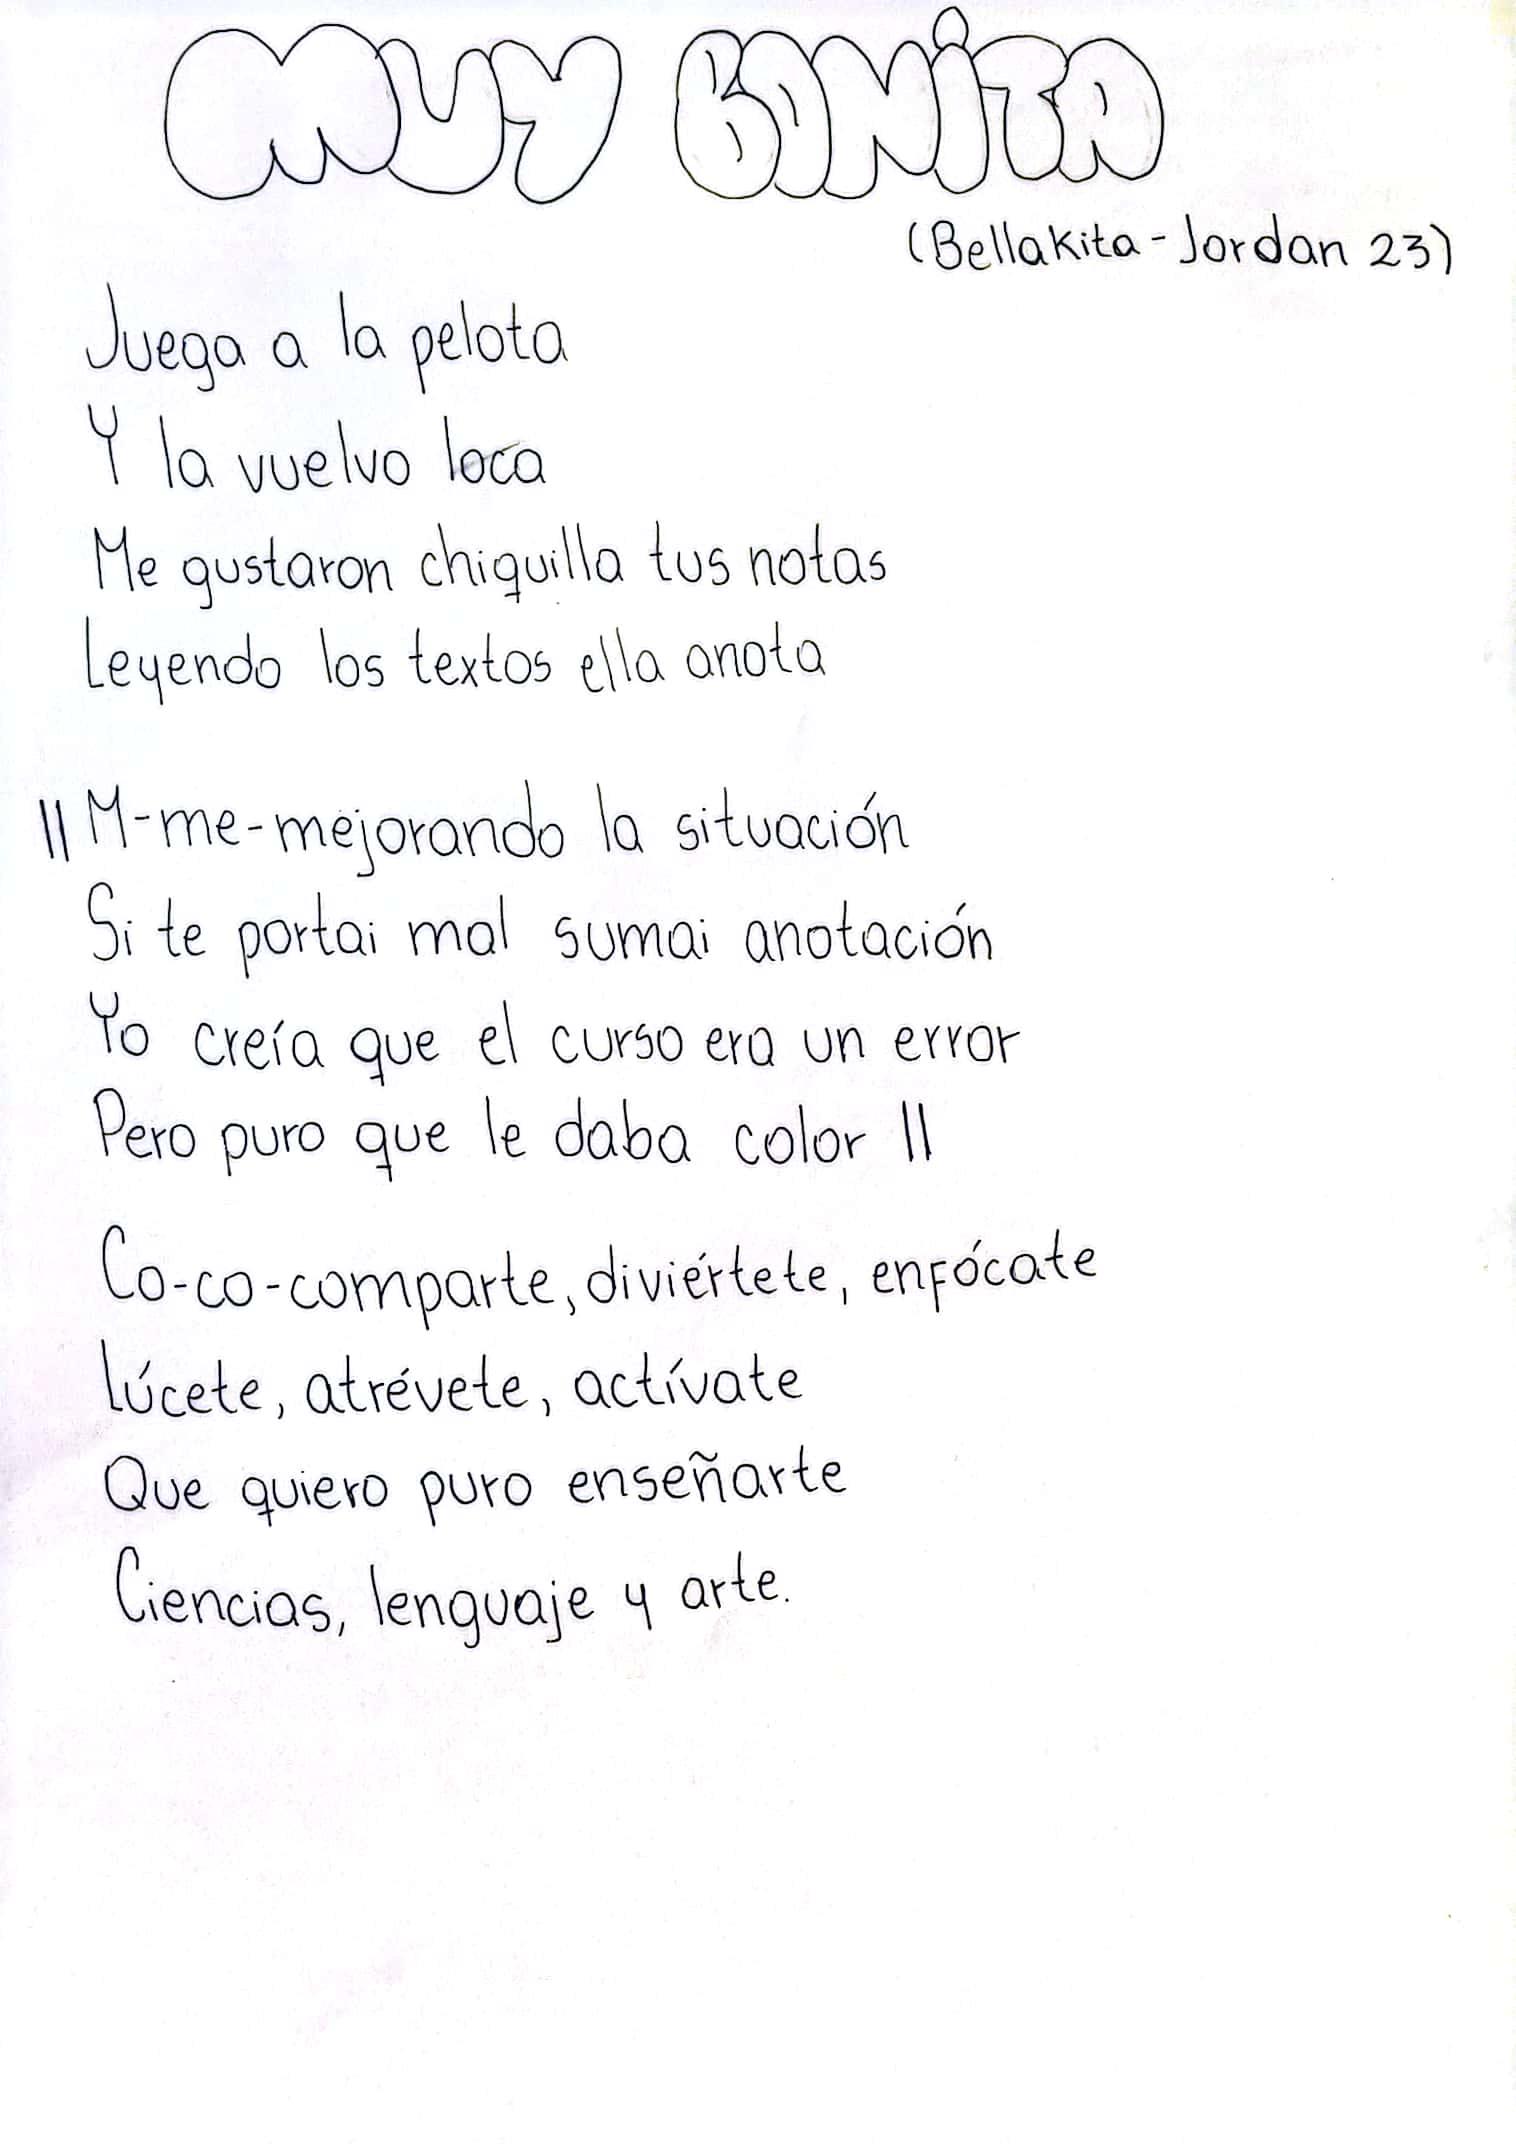 MUY BONITA
(Bellakita - Jordan 23)
Juega a la pelota
Y la vuelvo loca
Me gustaron chiquilla tus notas
Leyendo los textos ella anota
|| M-me-mejorando la situación
Si te portai mal sumai anotación
Yo creía que el curso era un error
Pero puro que le daba color ||
Co-co-comparte, diviértete, enfócate
Lúcete, atrévete, actívate
Que quiero puro enseñarte
Ciencias, lenguaje y arte.